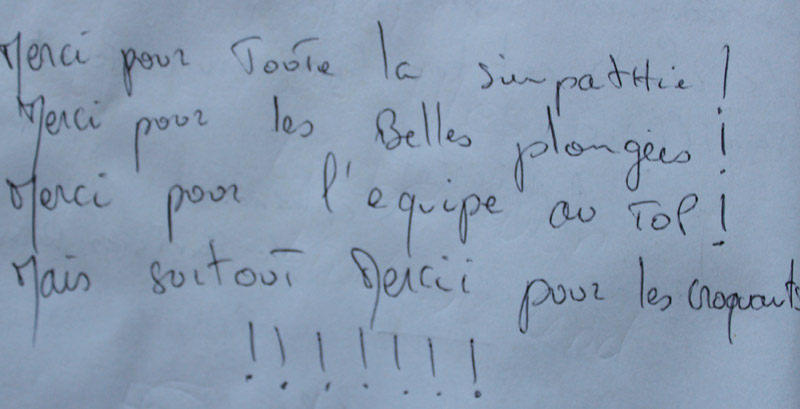 Merci pour Toute la simpattie !
Merci pour les Belles plongées !
Merci pour l'equipe au TOP !
Mais surtout Mercii pour les croquants
!!!!!!!